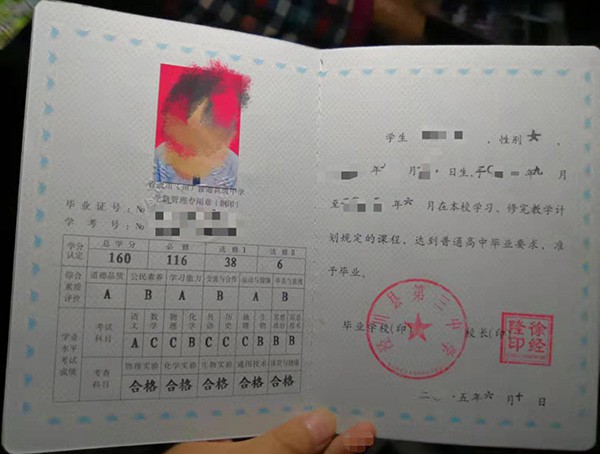 学籍管理专用章(钢印)
毕业证号：No
学考号：No
学分认定 总学分 必修 选修Ⅰ 选修Ⅱ
160 116 38 6
综合素质评价 道德品质 公民素养 学习能力 交流与合作 运动与健康 审美与表现
A B A B A B
学业水平考试成绩 考试科目 语文 数学 物理 化学 外语 历史 地理 生物 思想政治 信息技术
A C C B C C B C B B
考查科目 物理实验 化学实验 生物实验 通用技术 体育与健康
合格 合格 合格 合格 合格
学生 ，性别 女
年 月 日生，于 年 九 月
至 年 六 月在本校学习，修完教学计
划规定的课程，达到普通高中毕业要求，准
予毕业。
毕业学校(印) 校长(印)
川县第三中学
徐经隆印
二〇一五年六月十日